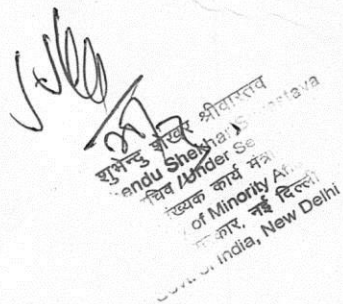 शुभेन्दु शेखर श्रीवास्तव
endu Shekhar S stava
चिव /Under Se
ख्यक कार्य मंत्रा
of Minority Af
कार, नई दिल्ली
Govt. of India, New Delhi